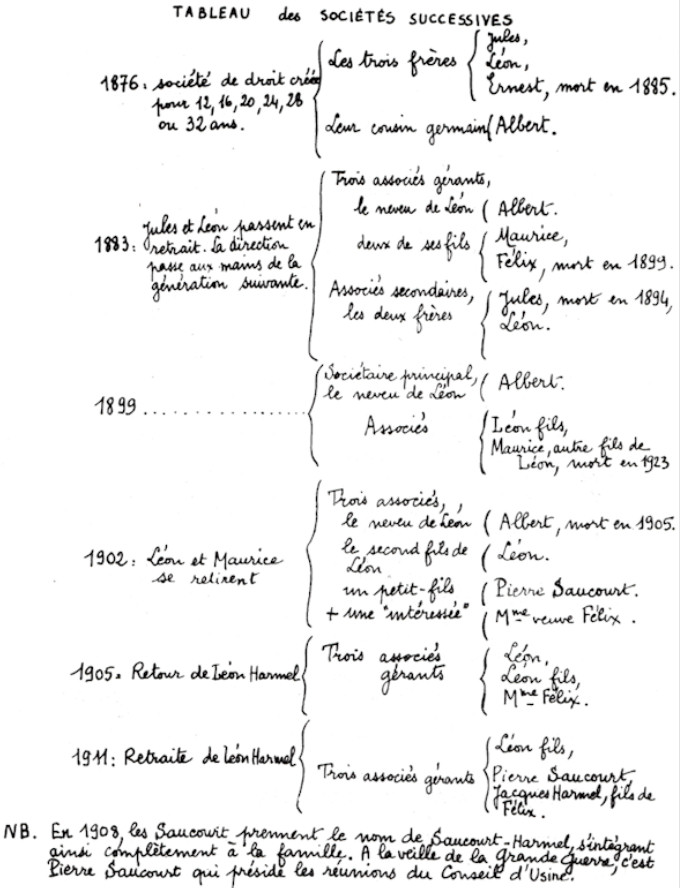 TABLEAU des SOCIÉTÉS SUCCESSIVES
1876 : société de droit créée
pour 12, 16, 20, 24, 28
ou 32 ans.
Les trois frères
Jules,
Léon,
Ernest, mort en 1885.
Leur cousin germain Albert.
1883 : Jules et Léon passent en
retrait. La direction
passe aux mains de la
génération suivante.
Trois associés gérants,
le neveu de Léon Albert.
deux de ses fils
Maurice,
Félix, mort en 1899.
Associés secondaires,
les deux frères
Jules, mort en 1894,
Léon.
1899 ..................
Sociétaire principal,
le neveu de Léon
Albert.
Associés
Léon fils,
Maurice, autre fils de
Léon, mort en 1923
1902 : Léon et Maurice
se retirent
Trois associés,
le neveu de Léon Albert, mort en 1905.
le second fils de
Léon
Léon.
un petit-fils Pierre Saucourt.
+ une "intéressée" Mme veuve Félix.
1905. Retour de Léon Harmel
Trois associés
gérants
Léon,
Léon fils,
Mme Félix.
1911 : Retraite de Léon Harmel
Trois associés gérants
Léon fils,
Pierre Saucourt,
Jacques Harmel, fils de
Félix.
NB. En 1908, les Saucourt prennent le nom de Saucourt-Harmel, s'intégrant
ainsi complètement à la famille. A la veille de la Grande Guerre, c'est
Pierre Saucourt qui préside les réunions du Conseil d'Usine.